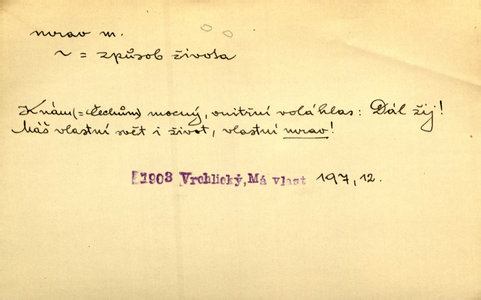 mrav m.
~ = způsob života
K nám (= Čechům) mocný, vnitřní volá hlas: Dál žij!
Máš vlastní svět i život, vlastní mrav!
1903 Vrchlický, Má vlast 197, 12.